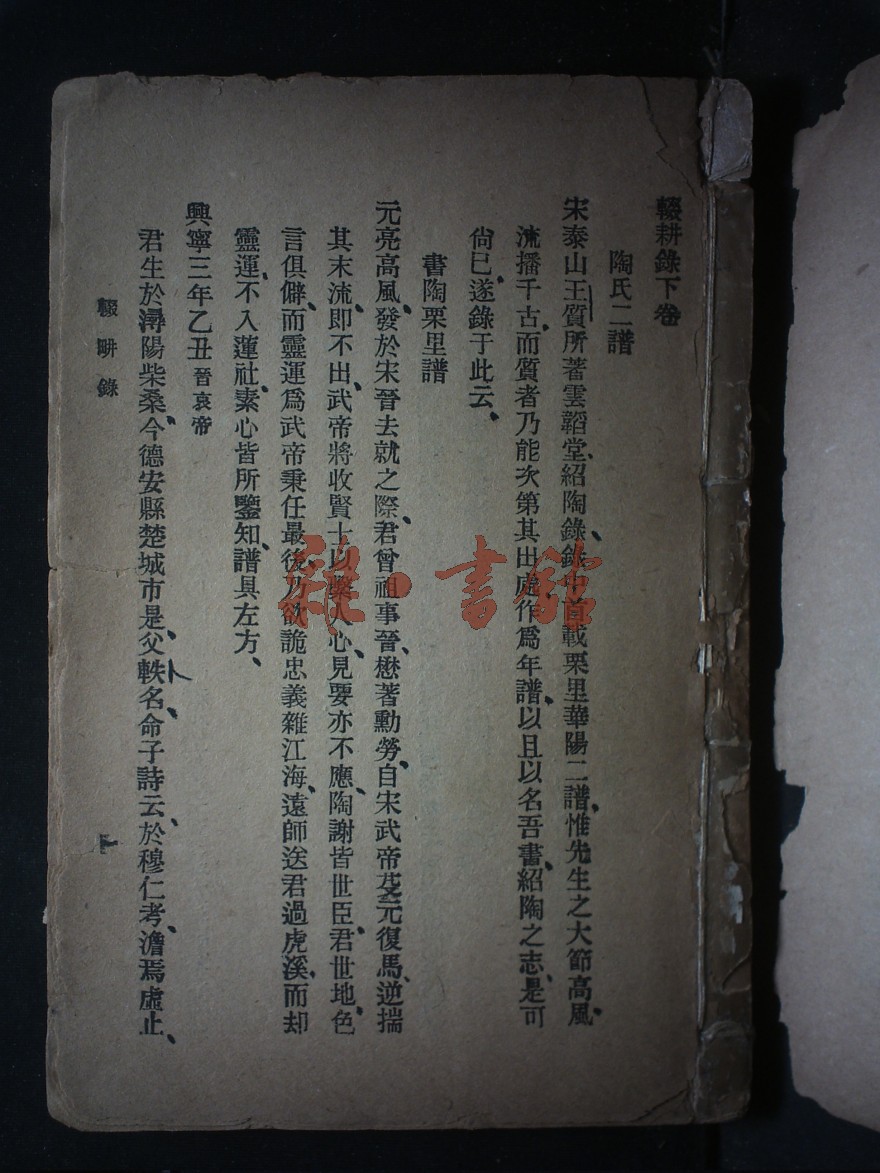 輟耕錄下卷
陶氏二譜
宋泰山王質所著雲韜堂、紹陶錄、錄中首載栗里華陽二譜、惟先生之大節高風、
流播千古、而質者乃能次第其出處、作爲年譜、以且以名吾書、紹陶之志、是可
尙已、遂錄于此云、
書陶栗里譜
元亮高風、發於宋晉去就之際、君曾祖事晉、懋著勳勞、自宋武帝芟元復馬、逆揣
其末流、卽不出、武帝將收賢士以繫人心、見要亦不應、陶謝皆世臣、君世地、色
言俱僻、而靈運爲武帝秉任最後、乃欲詭忠義雜江海、遠師送君過虎溪、而却
靈運、不入蓮社、素心皆所鑒知、譜具左方、
興寧三年乙丑晉哀帝
君生於潯陽柴桑、今德安縣楚城市是、父軼名、命子詩云、於穆仁考、澹焉虛止、
輟耕錄
一
雜·書館